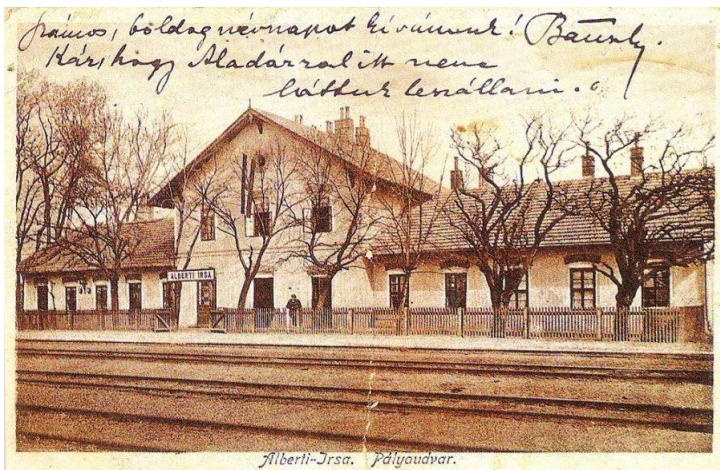 boldog névnapot kívánunk!
Kár, hogy Aladárral itt nem
láttuk leszállani.
ALBERTI IRSA
Alberti-Irsa. Pályaudvar.